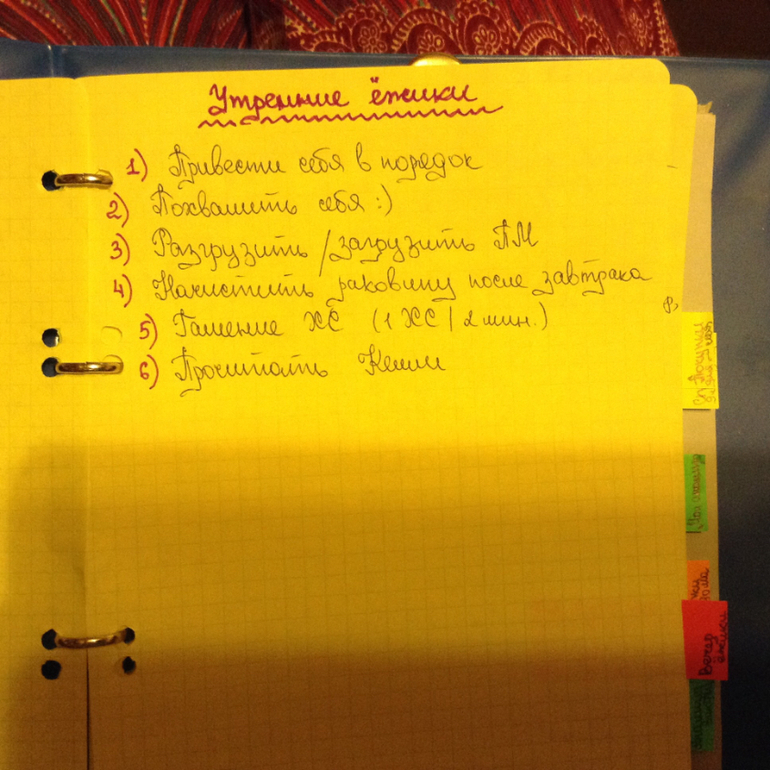 Утренние ёжики
1) Привести себя в порядок
2) Похвалить себя :)
3) Разгрузить / загрузить ПМ
4) Начистить раковину после завтрака
5) Гашение ХС (1 ХС / 2 мин.)
6) Прочитать Келли
Покупки
Вечер
ёжики